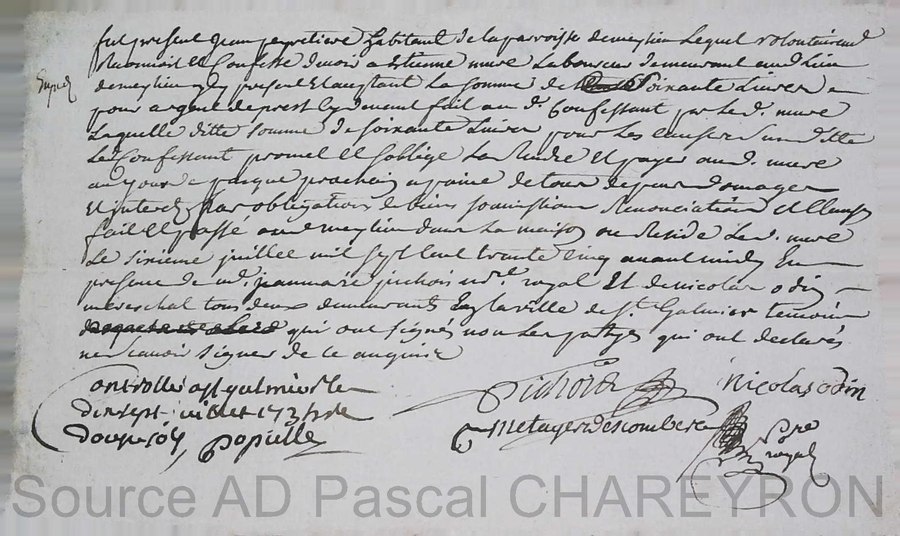 fut present Jean peyretiere habitant de la parroisse de meylieu Lequel volontairem.t
Reconnoit et Confesse devoir a Etienne mure Laboureur demeurant aud. Lieu
de meylieu icy present et acceptant La somme de soixante Livres
pour argent de prest cy devant fait au d. Confessant par le d. mure
Laquelle ditte somme de soixante Livres pour Les causes susditte
Le Confessant promet et soblige La Rendre et payer aud. mure
au jour de pasque prochain a peine de tous depens domages
et interets par obligation de biens soumissions Renonciations et Clauses
fait et passé aud. meylieu dans La maison ou Reside Le d. mure
Le sixieme juillet mil sept Cent trente Cinq avant midy En
presence de m.e jeanmarie pichois n.re royal Et de nicolas odin
mareschal tous deux demeurants En la ville de S.t Galmier temoins
qui ont signés non Les partyes qui ont declarés
ne scavoir signer de ce enquis
Controllé a S.t galmier le
dixsept juillet 1735 Re
douze sols populle
pichois
nicolas odin
metayer descombes
n.re royal
Source AD Pascal CHAREYRON